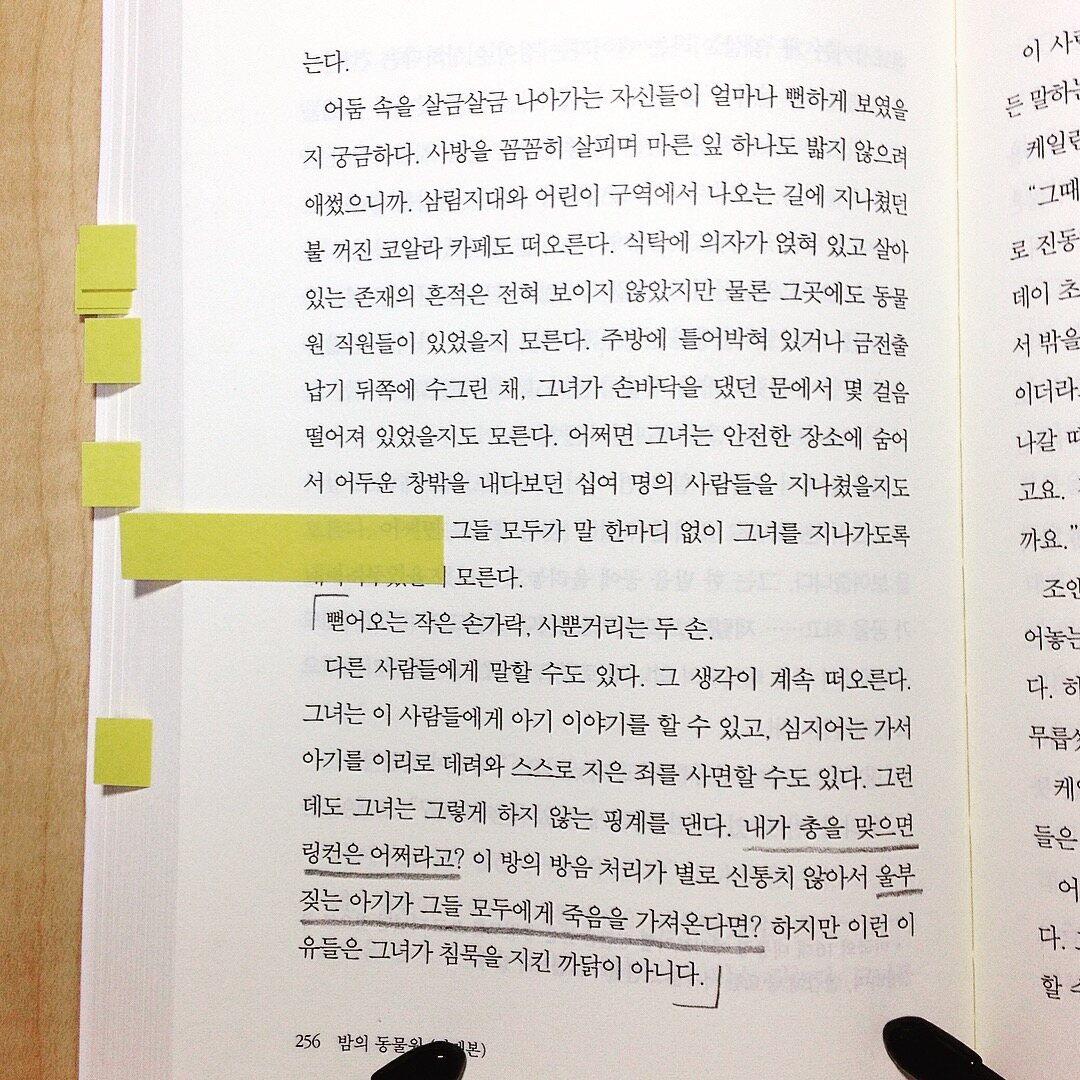 는다.
어둠 속을 살금살금 나아가는 자신들이 얼마나 뻔하게 보였을
지 궁금하다. 사방을 꼼꼼히 살피며 마른 잎 하나도 밟지 않으려
애썼으니까. 삼림지대와 어린이 구역에서 나오는 길에 지나쳤던
불 꺼진 코알라 카페도 떠오른다. 식탁에 의자가 얹혀 있고 살아
있는 존재의 흔적은 전혀 보이지 않았지만 물론 그곳에도 동물
원 직원들이 있었을지 모른다. 주방에 틀어박혀 있거나 금전출
납기 뒤쪽에 수그린 채, 그녀가 손바닥을 댔던 문에서 몇 걸음
떨어져 있었을지도 모른다. 어쩌면 그녀는 안전한 장소에 숨어
서 어두운 창밖을 내다보던 십여 명의 사람들을 지나쳤을지도
그들 모두가 말 한마디 없이 그녀를 지나가도록
모른다.
뻗어오는 작은 손가락, 사뿐거리는 두 손.
다른 사람들에게 말할 수도 있다. 그 생각이 계속 떠오른다.
그녀는 이 사람들에게 아기 이야기를 할 수 있고, 심지어는 가서
아기를 이리로 데려와 스스로 지은 죄를 사면할 수도 있다. 그런
데도 그녀는 그렇게 하지 않는 핑계를 댄다. 내가 총을 맞으면
링컨은 어쩌라고? 이 방의 방음 처리가 별로 신통치 않아서 울부
짖는 아기가 그들 모두에게 죽음을 가져온다면? 하지만 이런 이
유들은 그녀가 침묵을 지킨 까닭이 아니다.
256 밤의 동물원
이
든 말하는
케일린
“그때
로 진동
데이 초
서 밖을
이더라
나갈
고요.
까요.”
조안
어놓는
다.
무릎
케일
들은
어
다.
할